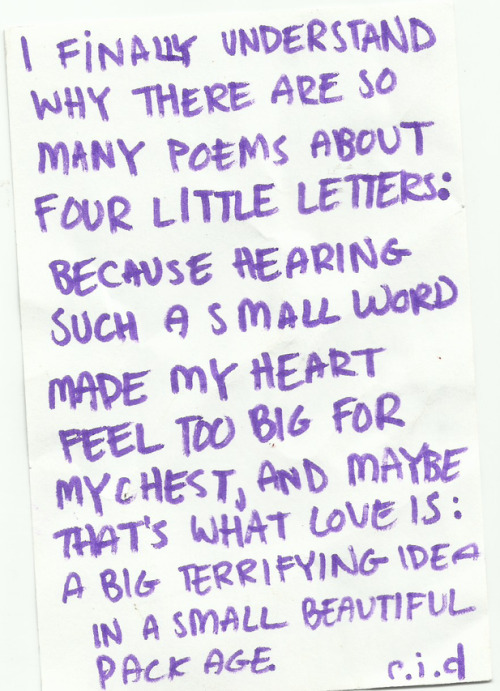 I FINALLY UNDERSTAND
WHY THERE ARE SO
MANY POEMS ABOUT
FOUR LITTLE LETTERS:
BECAUSE HEARING
SUCH A SMALL WORD
MADE MY HEART
FEEL TOO BIG FOR
MY CHEST, AND MAYBE
THAT'S WHAT LOVE IS:
A BIG TERRIFYING IDEA
IN A SMALL BEAUTIFUL
PACKAGE.
r.i.d